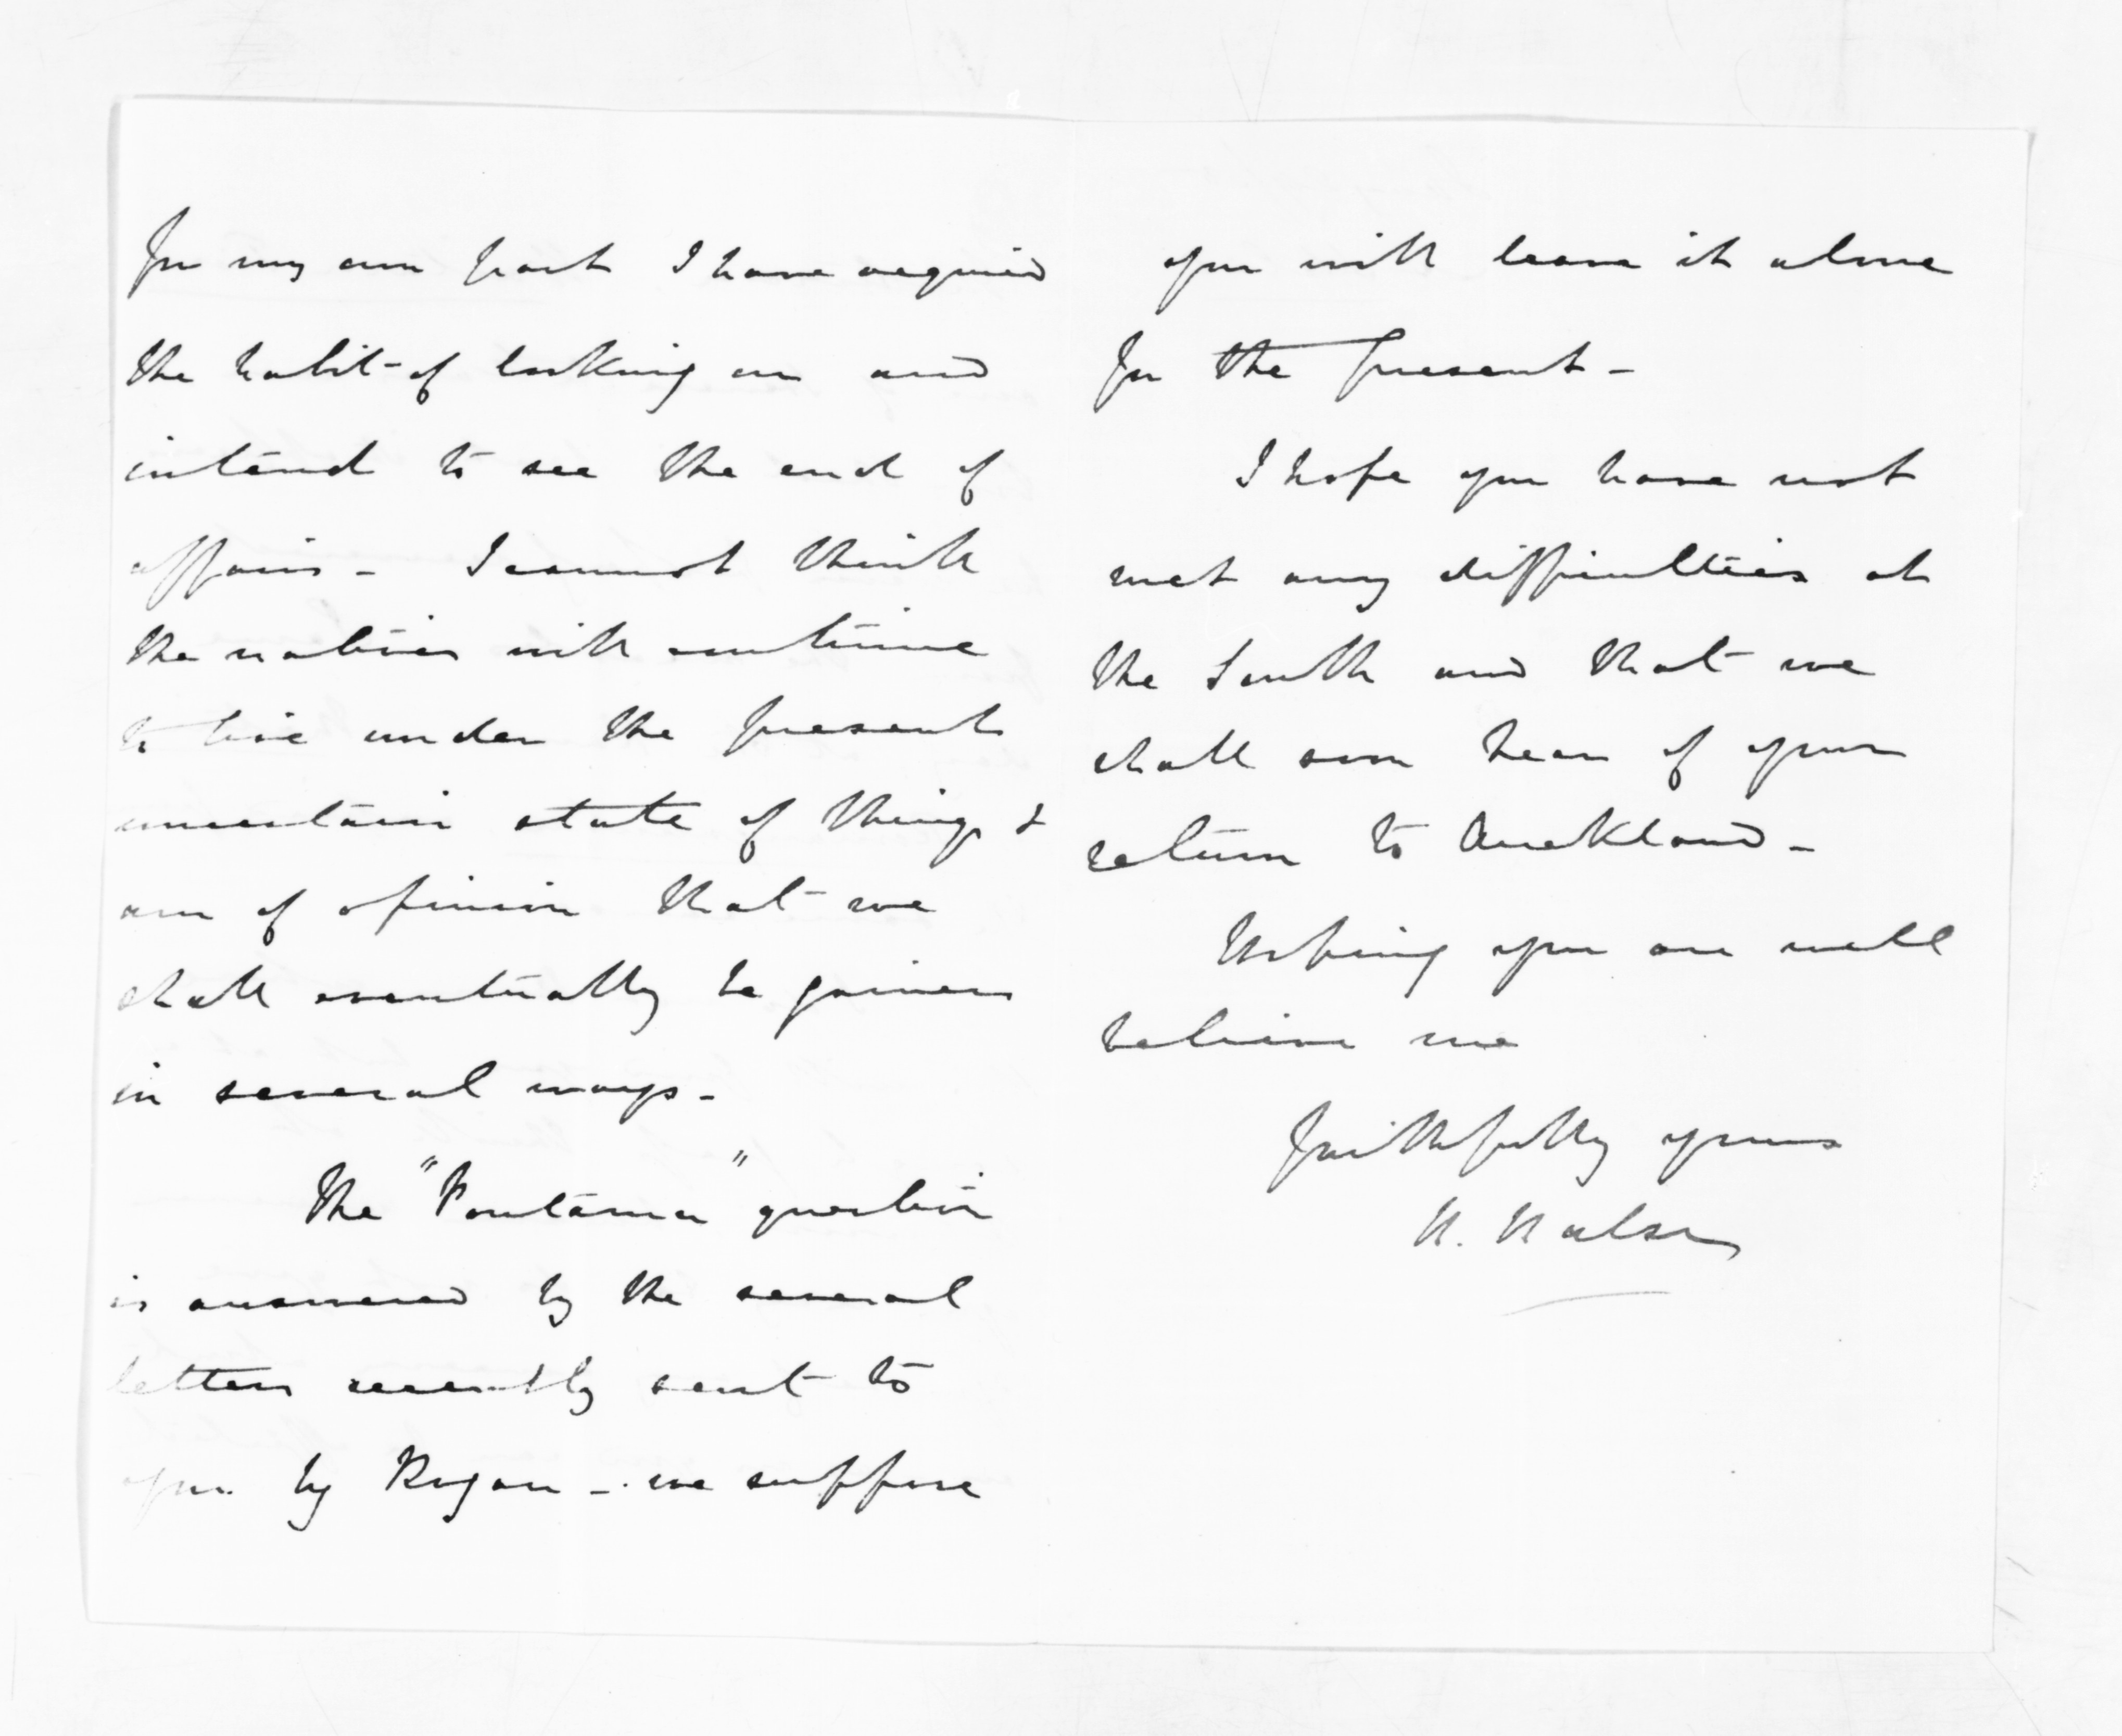 For my own part I have acquired
the habit of looking on and
intend to see the end of
affairs - I cannot think
the natives will continue
to live under the present
uncertain state of things &
am of opinion that we
shall eventually be gainers
in several ways -
The "Poutama" question
is answered by the several
letters recently sent to
you by Rogan - we suppose
you will leave it alone
for the present -
I hope you have not
met any difficulties at
the South and that we
shall soon hear of your
return to Auckland -
Hoping you are well
believe me
Faithfully yours
H. Halse